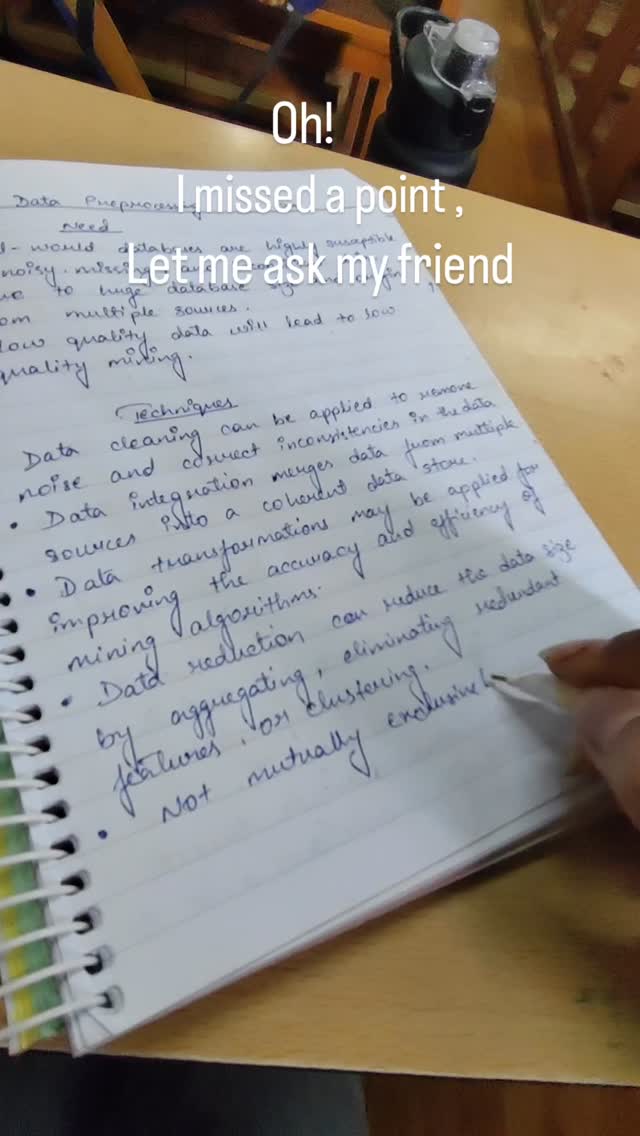 Oh!
I missed a point ,
Let me ask my friend
Data Preprocessing
Need
world databases are highly susceptible
noisy, missing
to huge database
multiple sources.
low quality data will lead to low
quality mining.
Techniques
Data cleaning can be applied to remove
noise and correct inconsistencies in the data
• Data integration merges data from multiple
sources into a coherent data store.
• Data transformations may be applied for
improving the accuracy and efficiency of
mining algorithms.
• Data reduction can reduce the data size
by aggregating, eliminating redundant
features, or clustering.
• Not mutually exclusive